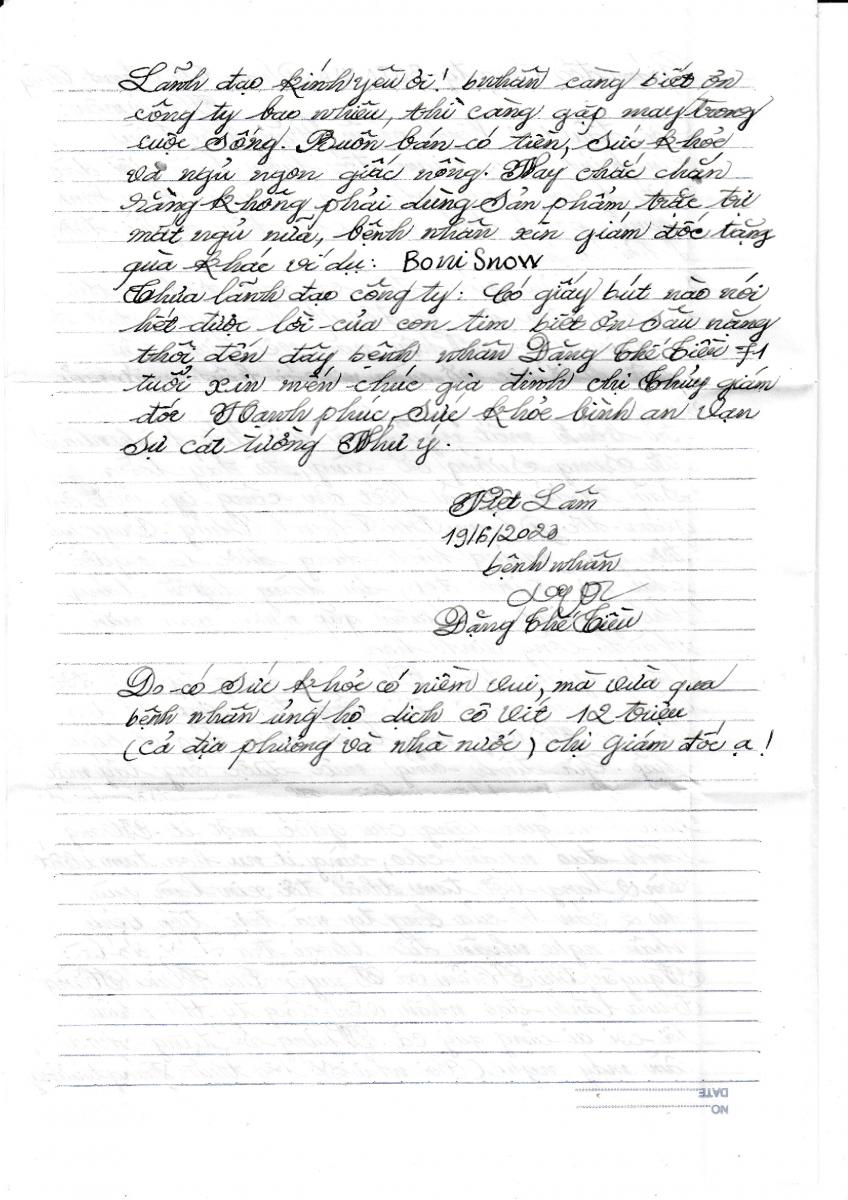 Lãnh đạo kính yêu ơi! bnhân càng biết ơn
công ty bao nhiêu, thì càng gặp may trong
cuộc sống. Buôn bán có tiền, sức khỏe
và ngủ ngon giấc nồng. Nay chắc chắn
rằng không phải dùng sản phẩm trắc trị
mất ngủ nữa, bệnh nhân xin giám đốc tặng
quà khác ví dụ: BoniSnow
Thưa lãnh đạo công ty: Có giấy bút nào nói
hết được lời của con tim biết ơn sâu nặng
thôi đến đây bệnh nhân Đặng Thế Tiều 71
tuổi xin mến chúc gia đình chị Thủy giám
đốc Hạnh phúc, sức khỏe bình an vạn
sự cát tường Như ý.
Việt Lâm
19/6/2020
bệnh nhân
Đặng Thế Tiều
Do có sức khỏe có niềm vui, mà vừa qua
bệnh nhân ủng hộ dịch cô vít 12 triệu
(cả địa phương và nhà nước) chị giám đốc ạ!
DATE
NO